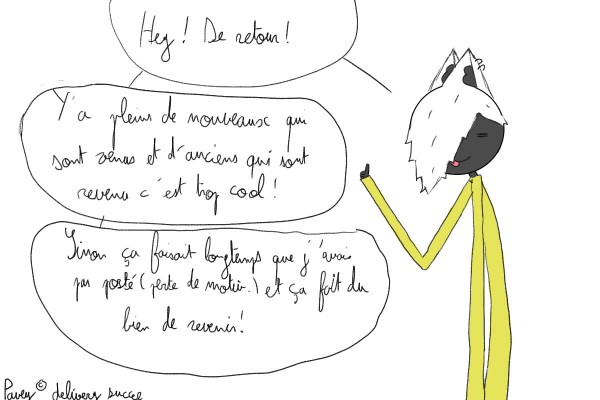 Hey ! De retour !
Y'a pleins de nouveaux qui
sont venus et d'anciens qui sont
revenu c'est trop cool !
Sinon ça faisait longtemps que j'avais
pas posté (perte de motiv.) et ça fait du
bien de revenir !
Pavey © delivery